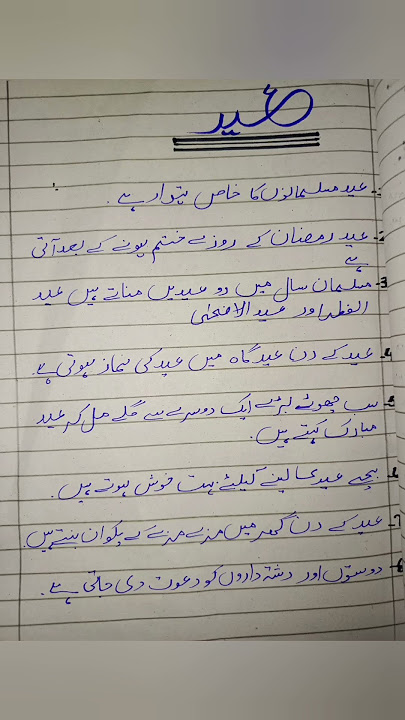 عید
1- عید مسلمانوں کا خاص تہوار ہے۔
2- عید رمضان کے روزے ختم ہونے کے بعد آتی
ہے
3- مسلمان سال میں دو عیدیں مناتے ہیں عید
الفطر اور عید الاضحٰی
4- عید کے دن عید گاہ میں عید کی نماز ہوتی ہے۔
5- سب چھوٹے بڑے ایک دوسرے سے گلے مل کر عید
مبارک کہتے ہیں۔
6- بچے عیدی لینے کیلئے بہت خوش ہوتے ہیں۔
7- عید کے دن گھر میں مزے مزے کے پکوان بنتے ہیں۔
8- دوستوں اور رشتہ داروں کو دعوت دی جاتی ہے۔